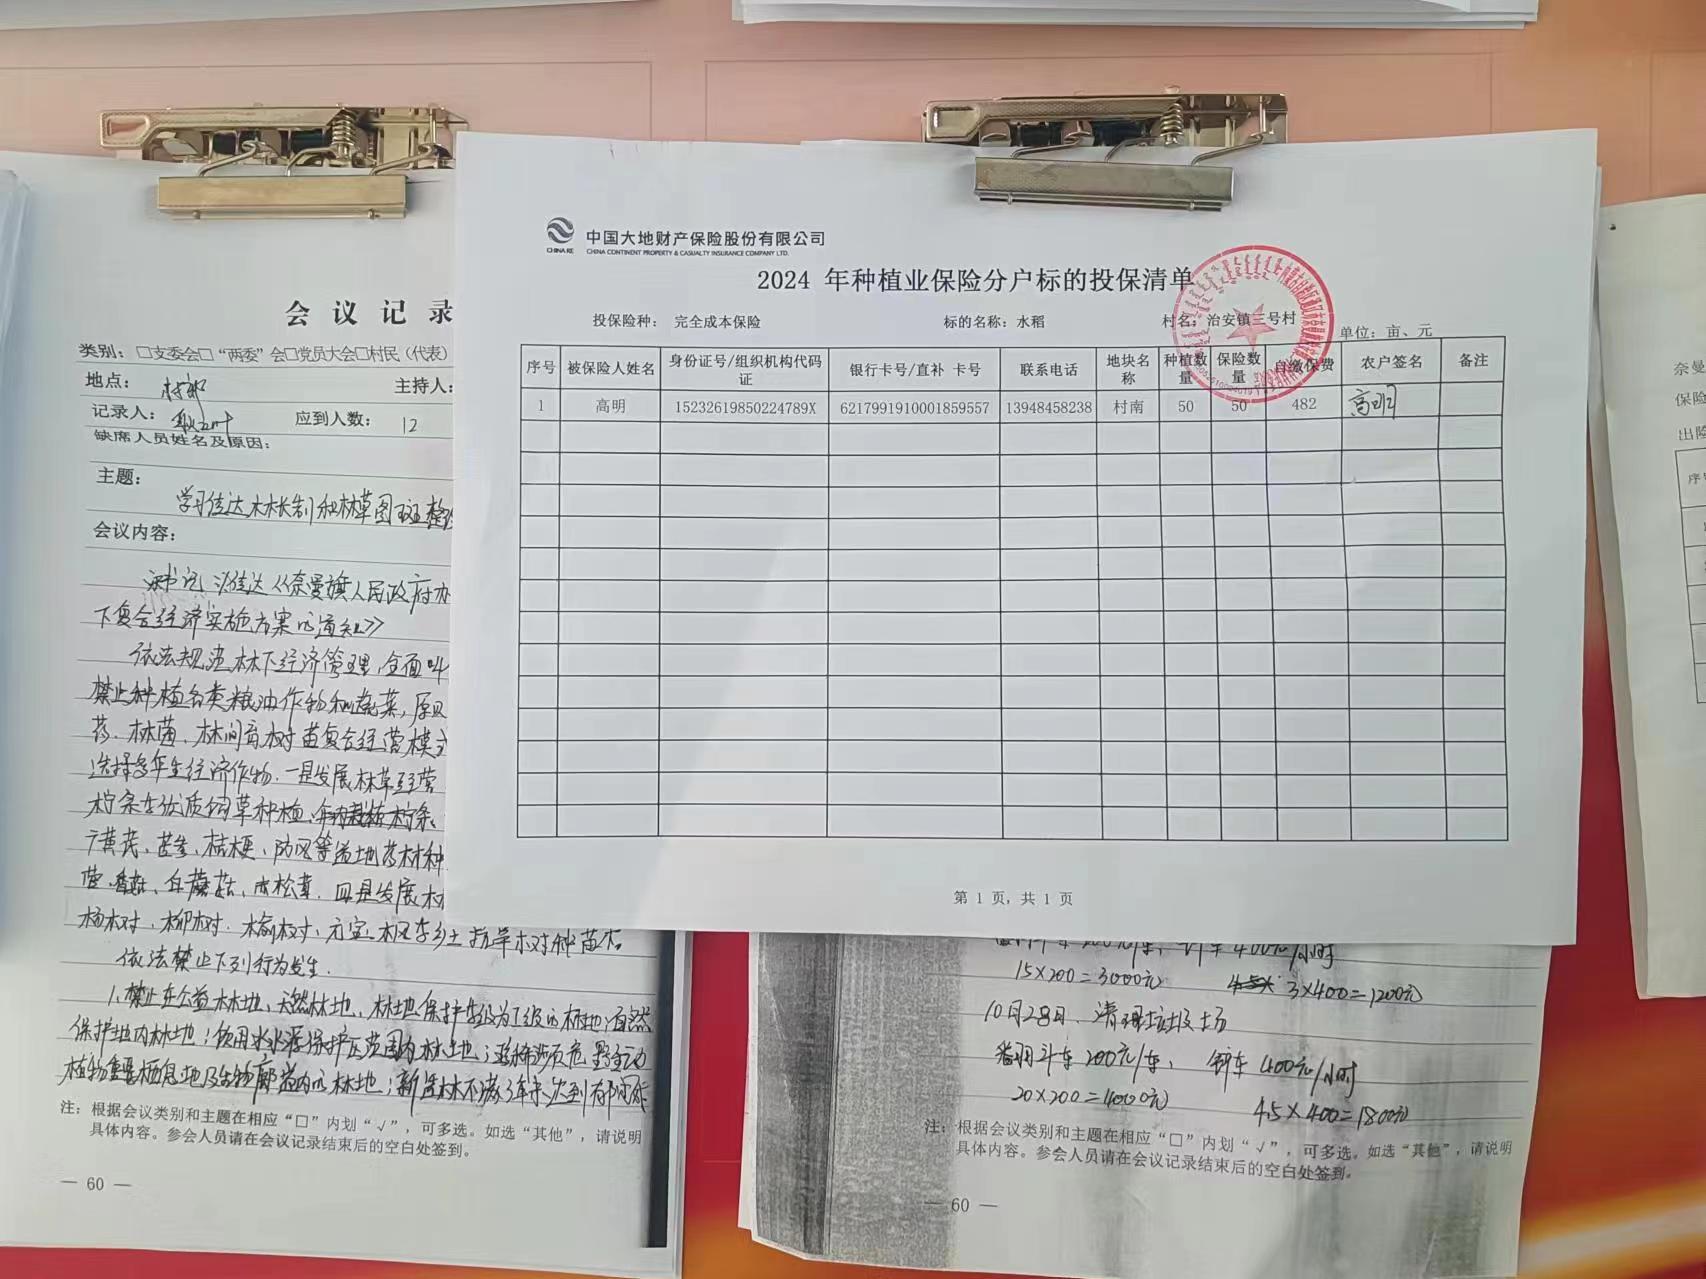 中国大地财产保险股份有限公司
CHINA RE CHINA CONTINENT PROPERTY & CASUALTY INSURANCE COMPANY LTD.
2024 年种植业保险分户标的投保清单
投保险种： 完全成本保险 标的名称：水稻 村名：治安镇三号村 单位：亩、元
序号 被保险人姓名 身份证号/组织机构代码证 银行卡号/直补 卡号 联系电话 地块名称 种植数量 保险数量 自缴保费 农户签名 备注
1 高明 15232619850224789X 6217991910001859557 13948458238 村南 50 50 482 高明
第 1 页，共 1 页
会 议 记 录
类别：□支委会□“两委”会□党员大会□村民（代表）
地点：村部 主持人：
记录人： 应到人数： 12
缺席人员姓名及原因：
主题：
学习传达林长制和林草图斑整
会议内容：
书记 传达《奈曼旗人民政府办
下复合经济实施方案的通知》
依法规范林下经济管理，全面
禁止种植各类粮油作物和蔬菜，原
药、林菌、林间育树苗复合经营模式
选择多年生经济作物．一是发展林草经营
柠条等优质饲草种植， 柠条、
黄芪、苦参、桔梗、防风等道地药材种
香菇、白蘑菇、松茸．四是发展林
杨树、柳树、榆树、元宝枫等乡土抗旱树种苗木。
依法禁止下列行为发生．
1.禁止在公益林林地、天然林地、林地保护等级为I级的林地；自然
保护地内林地；饮用水水源保护区范围内林地；珍稀濒危野生动
植物重要栖息地及生物廊道内的林地；新造林不满3年未达到郁闭成
注：根据会议类别和主题在相应“□”内划“√”，可多选。如选“其他”，请说明
具体内容。参会人员请在会议记录结束后的空白处签到。
— 60 —
200元/车， 钩车400元/小时
15×200=3000元 3×400=1200元
10月28日．清理垃圾场
翻斗车200元/车， 钩车400元/小时
20×200=4000元 4.5×400=1800元
注：根据会议类别和主题在相应“□”内划“√”，可多选。如选“其他”，请说明
具体内容。参会人员请在会议记录结束后的空白处签到。
— 60 —
奈曼
保险
出险
序号